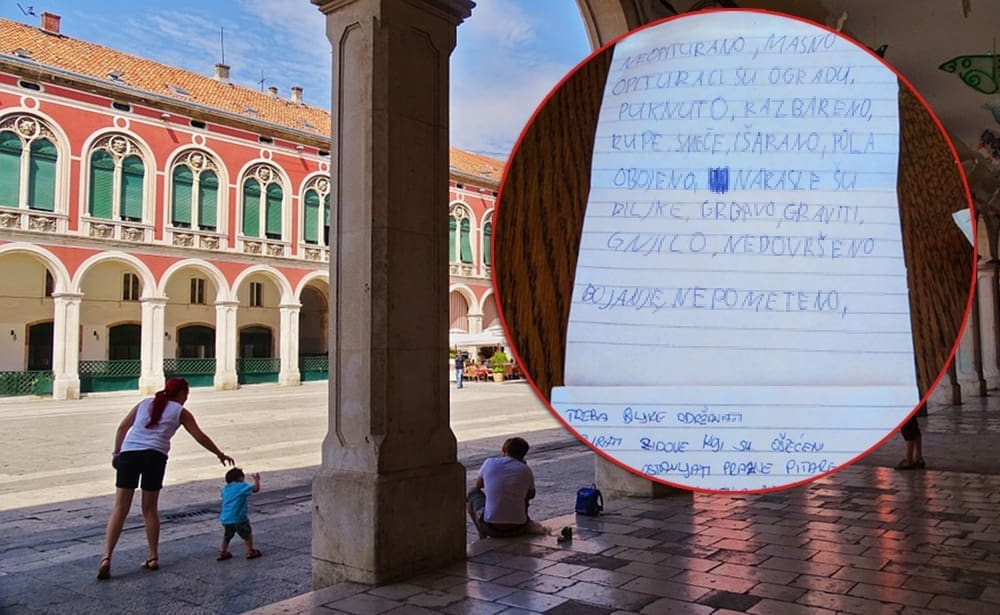 NEOPITURANO, MASNO
OPITURACI SU OGRADU,
PUKNUTO, RAZBAŘENO,
RUPE SMEĆE, IŠARANO, PÙLA
OBOJENO, NARASLE SU
BILJKE, GRBAVO, GRAVITI,
GNJILO, NEDOVRŠENO
BOJANJE, NEPOMETENO,
TREBA BILJKE ODRŽAVATI
ZIDOVE KOJI SU OŠTEĆENI
OSTAVLJATI PRAZNE PITARE